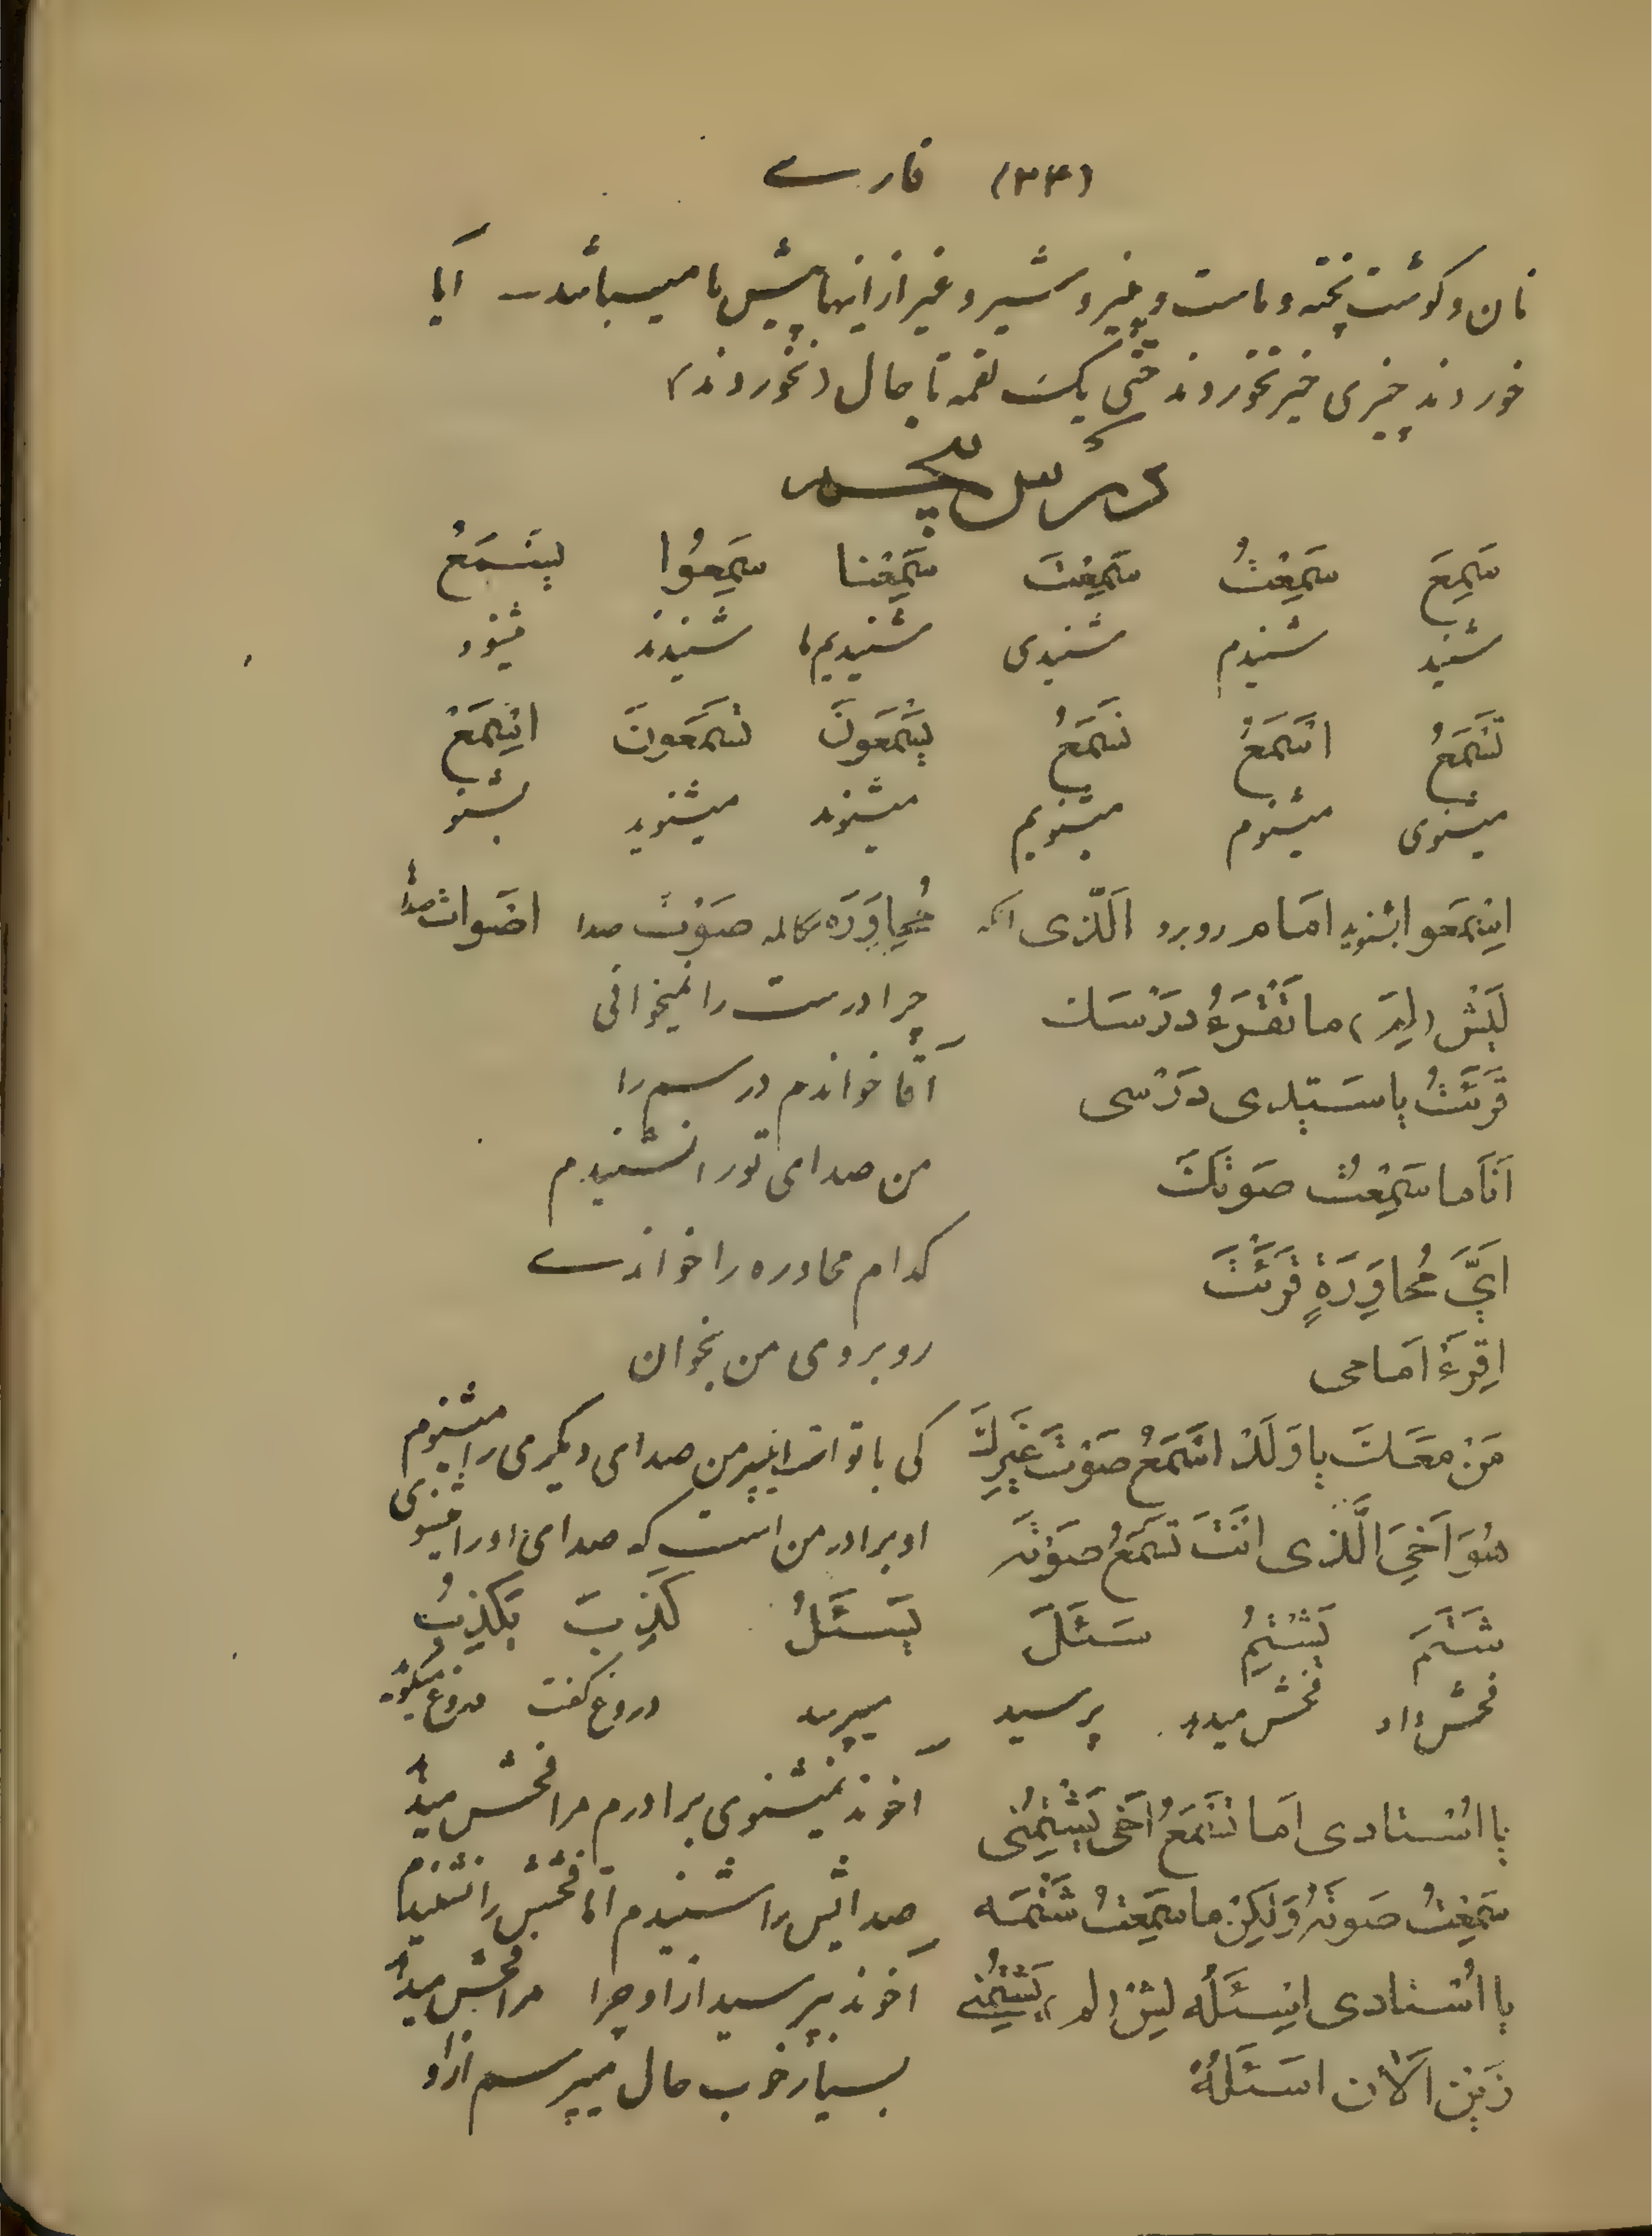 (۳۴) فارسے
نان و گوشت پخته و ماست و پنیر و شیر و غیر از اینها پیش ما میباشد آیا
خوردند چیزی خیر نخوردند حتّی یک لقمه تا حال (نخوردند)
درس پنجم
سَمِعَ سَمِعْتُ سَمِعْتَ سَمِعْنا سَمِعُوا یَسْمَعُ
شنید شنیدم شنیدی شنیدیم ما شنیدند شنود
تَسْمَعُ اَسْمَعُ نَسْمَعُ یَسْمَعُونَ تَسْمَعُونَ اِسْمَعْ
میشنوی میشنوم میشنویم میشنوند میشنوید بشنو
اِسْمَعوا بشنوید اَمام روبرو اَلَّذی آنکه مُحاوَرَه مکالمه صَوْت صدا اَصْوات صداها
لَیْش (لِمَ) ما تَقْرَءُ دَرْسَک چرا درست را نمیخوانی
قَرَئْتُ یا سَیّدی دَرْسی آقا خواندم درسم را
اَنَا ما سَمِعْتُ صَوتَکَ من صدای تو را نشنیدم
اَیَّ مُحاوِرَةٍ قَرَئْتَ کدام محاوره را خواندے
اِقْرَءْ اَمامی روبروی من بخوان
مَنْ مَعَکَ یا وَلَدْ اَسْمَعُ صَوْتَ غَیْرِکَ کی با تو است ای پسر من صدای دیگری را میشنوم
هُوَ اَخِیَ الَّذی اَنْتَ تَسْمَعُ صَوْتَه او برادر من است که صدای او را میشنوی
شَتَمَ یَشْتِمُ سَئَلَ یَسْئَلُ کَذِبَ یَکْذِبُ
فحش داد فحش میدهد پرسید میپرسد دروغ گفت دروغ میگوید
یا اُسْتادی اَما تَسْمَعُ اَخی یَشْتِمُنی آخوند نمیشنوی برادرم مرا فحش میدهد
سَمِعْتُ صَوتَهُ وَلکِنْ ما سَمِعْتُ شَتْمَه صدایش را شنیدم امّا فحشش را نشنیدم
یا اُسْتادی اِسْئَلْه لیش (لم) یَشْتِمُنے آخوند بپرسید از او چرا مرا فحش میدهد
زَیْن اَلْآن اَسْئَلُهُ بسیار خوب حال میپرسم از او